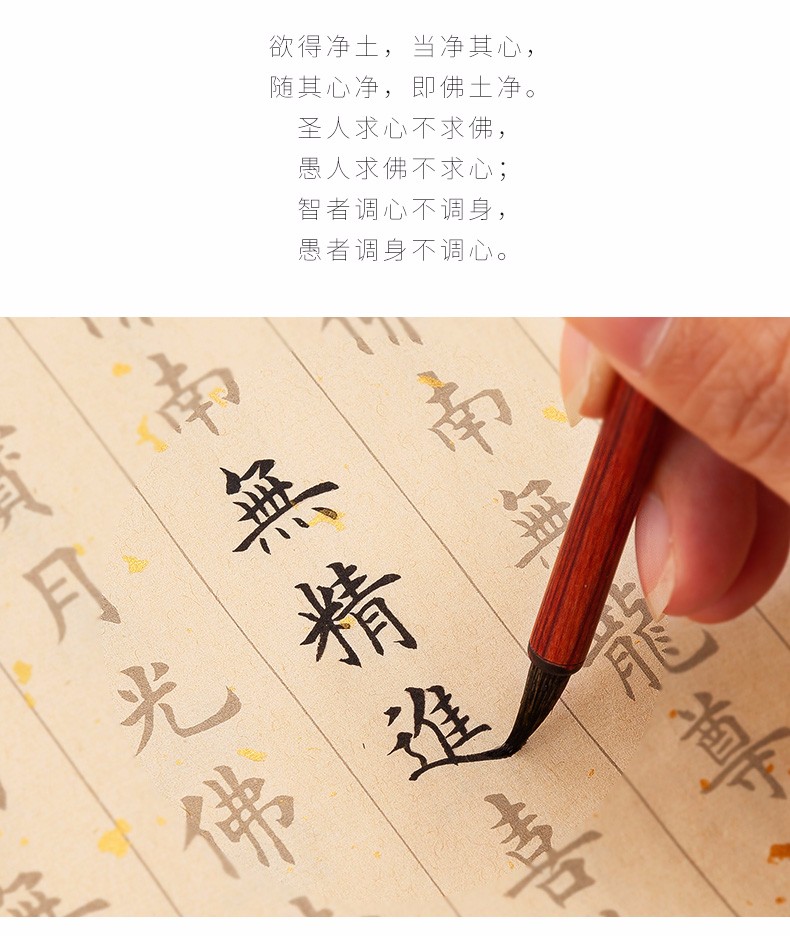 欲得净土，当净其心，
随其心净，即佛土净。
圣人求心不求佛，
愚人求佛不求心；
智者调心不调身，
愚者调身不调心。
佛南無龍尊
南無精進喜
寶月光佛
無